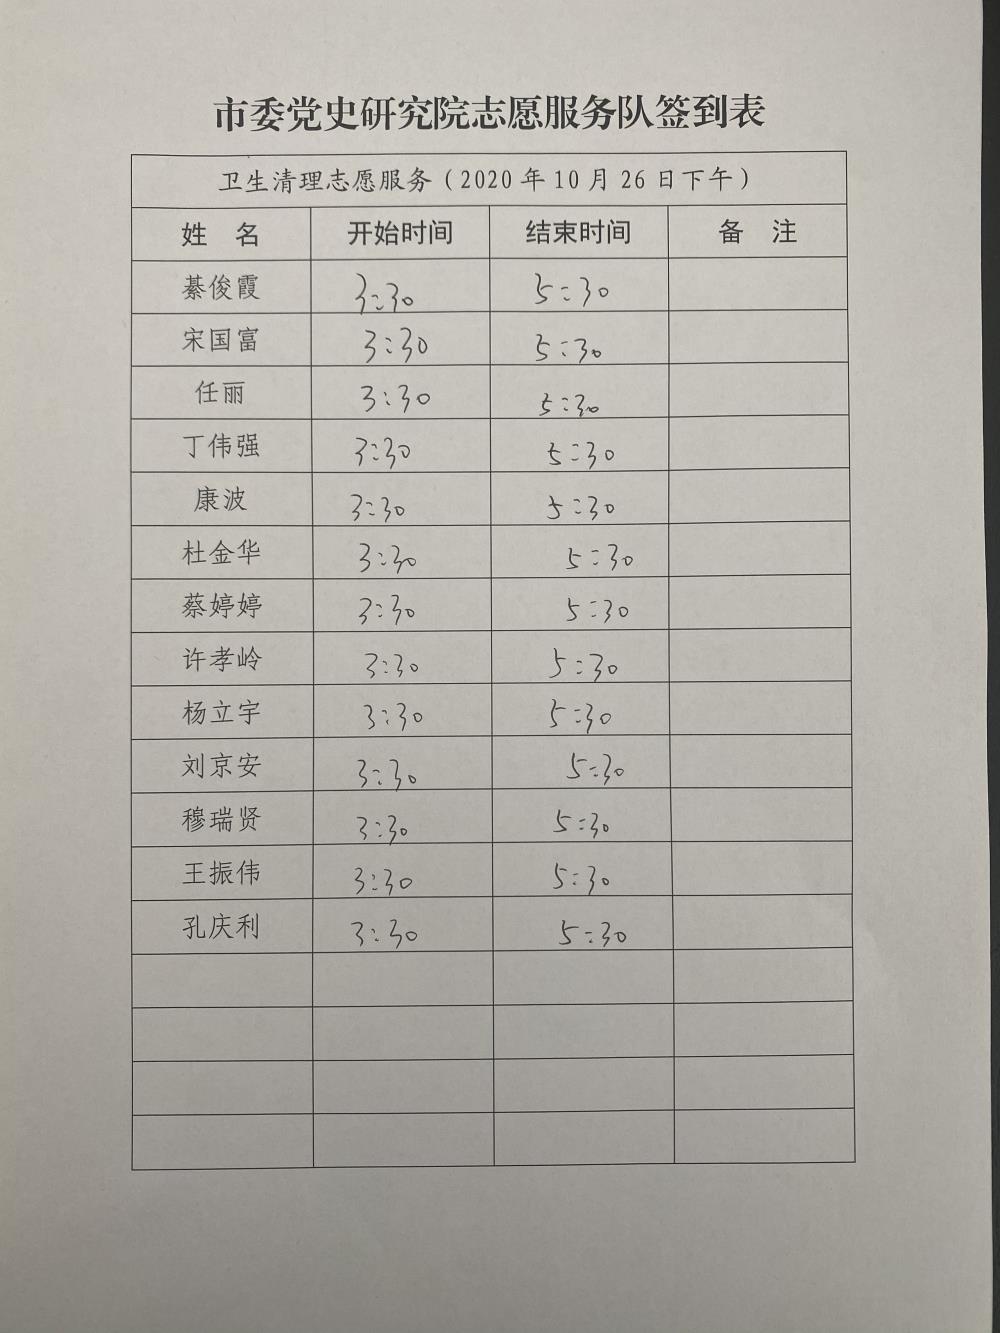 市委党史研究院志愿服务队签到表
卫生清理志愿服务（2020年10月26日下午）
姓 名 开始时间 结束时间 备 注
綦俊霞 3:30 5:30
宋国富 3:30 5:30
任丽 3:30 5:30
丁伟强 3:30 5:30
康波 3:30 5:30
杜金华 3:30 5:30
蔡婷婷 3:30 5:30
许孝岭 3:30 5:30
杨立宇 3:30 5:30
刘京安 3:30 5:30
穆瑞贤 3:30 5:30
王振伟 3:30 5:30
孔庆利 3:30 5:30